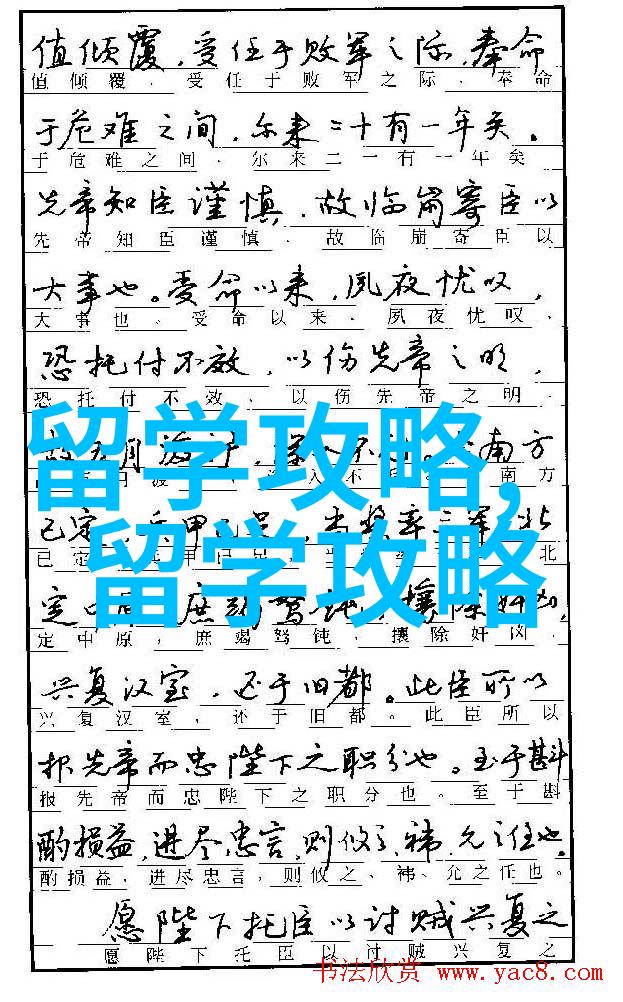 值倾覆，受任于败军之际，奉命
值倾覆，受任于败军之际，奉命
于危难之间，尔来二十有一年矣。
于危难之间，尔来二一有一年矣
先帝知臣谨慎，故临崩寄臣以
先帝知臣谨慎，故临崩寄臣以
大事也。受命以来，夙夜忧叹，
大事也。受命以来，夙夜忧叹，
恐托付不效，以伤先帝之明，
恐托付不效，以伤先帝之明，
留学攻略，
南方
入不 南方
已定，兵甲已足，当奖率三军，北
已定 北
留学攻略
定中 庶竭驽钝，攘除奸凶，
定中原，庶竭驽钝，攘除奸凶，
兴复汉室，还于旧都。此臣所以
兴复汉室，还于旧都。此臣所以
报先帝而忠陛下之职分也。至于斟
报先帝而忠陛下之职分也。至于斟
酌损益，进尽忠言，则攸之、祎、允之任也。
酌损益，进尽忠言，则攸之、祎、允之任也。
愿陛下托臣以讨贼兴复之
愿陛下托臣以讨贼兴复之
书法欣赏 www.yac8.com